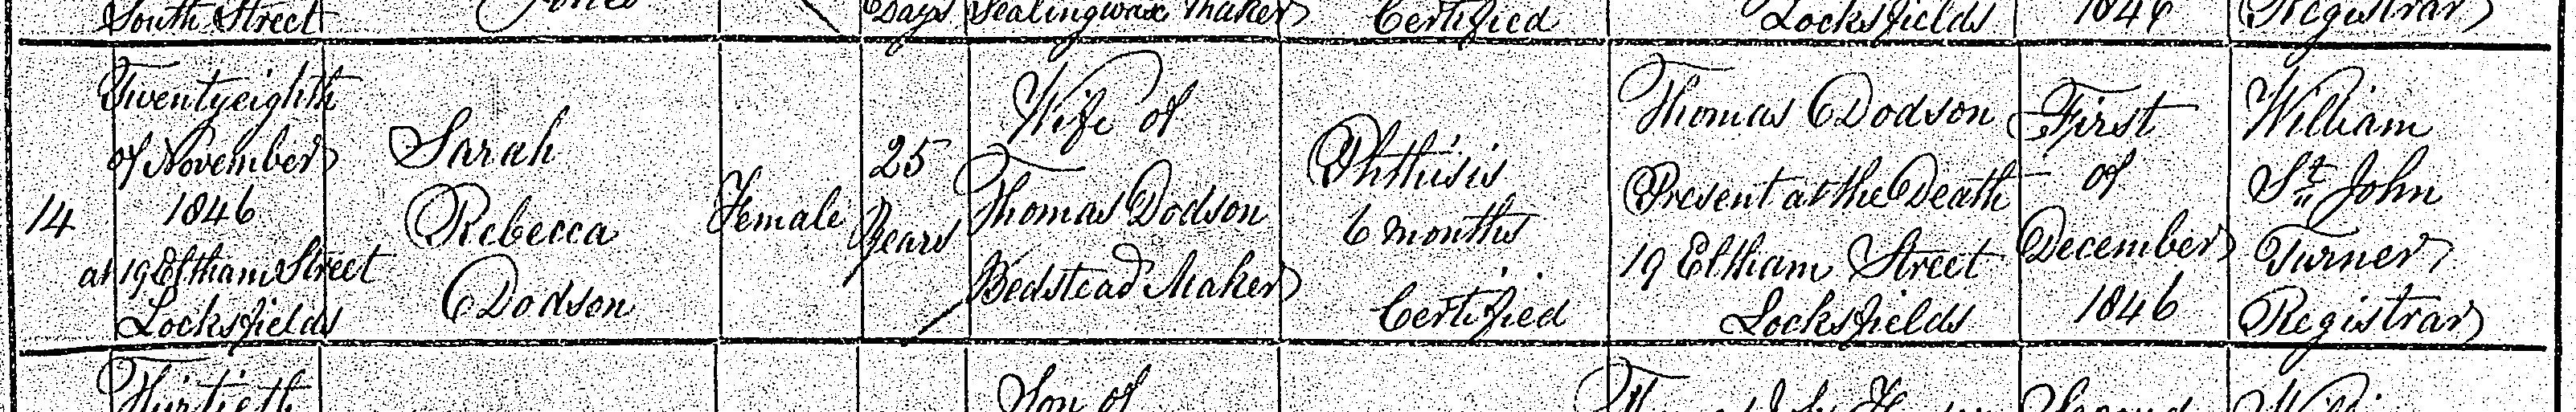 South Street
Days
Sealingwax Maker
Certified
Locksfields
1846
Registrar
14
Twentyeighth
of November
1846
at 19 Eltham Street
Locksfields
Sarah
Rebecca
Dodson
Female
25
Years
Wife of
Thomas Dodson
Bedstead Maker
Phthisis
6 months
Certified
Thomas Dodson
Present at the Death
19 Eltham Street
Locksfields
First
of
December
1846
William
St. John
Turner
Registrar
Thirtieth
Son of
Second